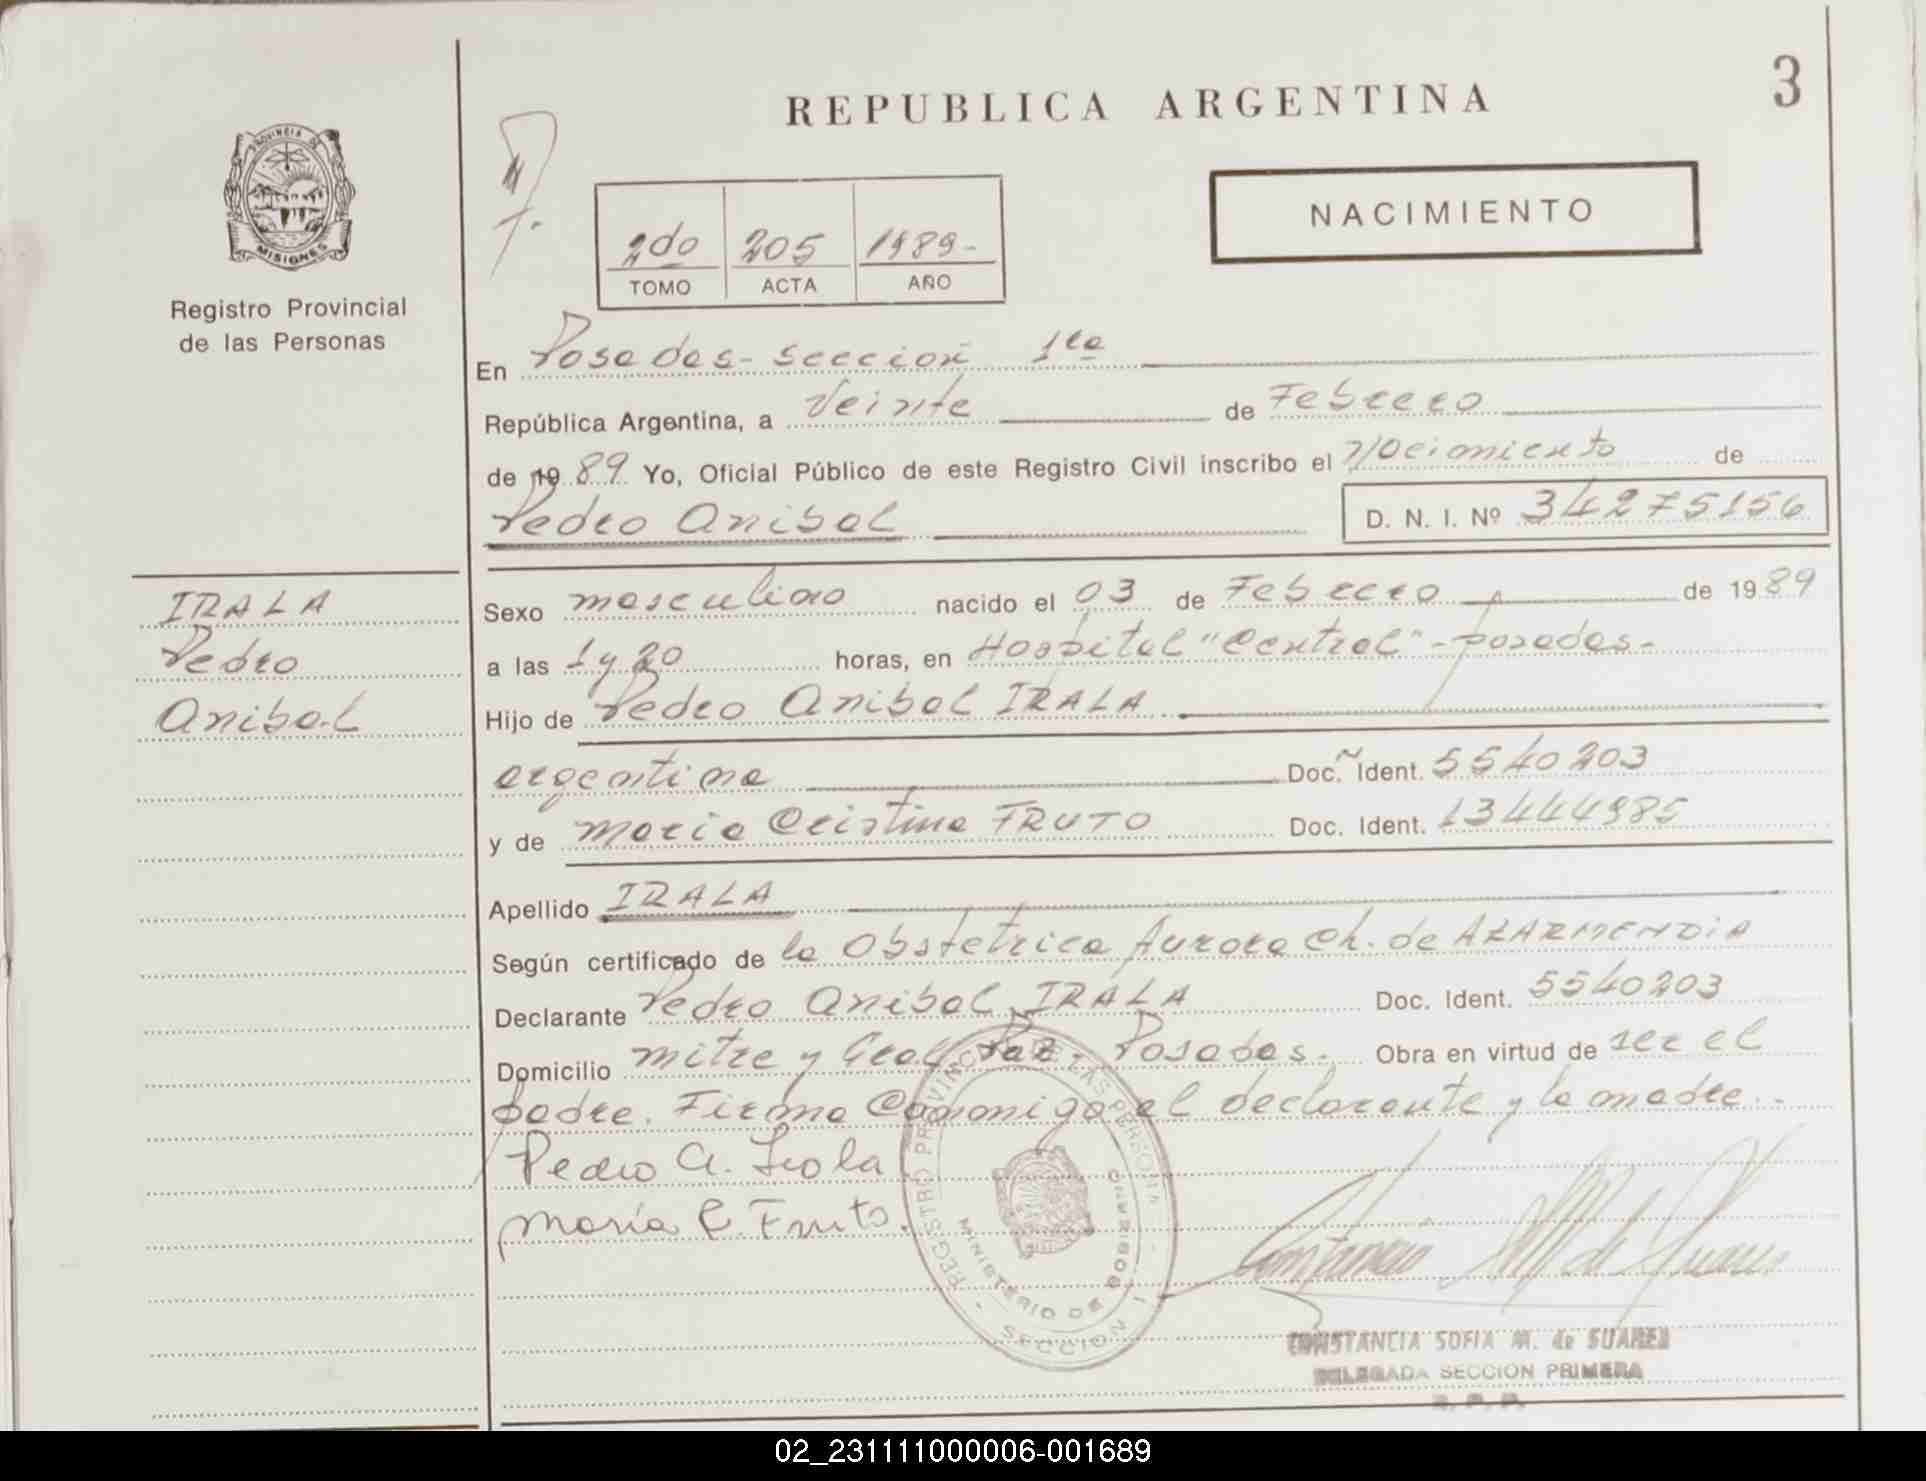 REPUBLICA ARGENTINA
3
PROVINCIA DE
MISIONES
Registro Provincial
de las Personas
NACIMIENTO
2do 205 1989-
TOMO ACTA AÑO
En Posadas - Seccion 1ra
República Argentina, a Veinte de Febrero
de 1989 Yo, Oficial Público de este Registro Civil inscribo el Nacimiento de
Pedro Anibal D. N. I. Nº 34275156
IRALA
Pedro
Anibal
Sexo masculino nacido el 03 de Febrero de 1989
a las 1 y 20 horas, en Hospital "Central" - posadas -
Hijo de Pedro Anibal IRALA
argentina Doc. Ident. 5540203
y de maria Cristina FRUTO Doc. Ident. 13444985
Apellido IRALA
Según certificado de la Obstetrica Aurora Ch. de AZARMENDIA
Declarante Pedro Anibal IRALA Doc. Ident. 5540203
Domicilio mitre y Gral Paz - Posadas. Obra en virtud de ser el
padre. Firma Conmigo el declarante y la madre.
Pedro A. Irala
maría C. Fruto.
REGISTRO PROVINCIAL DE LAS PERSONAS
MINISTERIO DE GOBIERNO
SECCION 1
CONSTANCIA SOFIA M. de SUAREZ
DELEGADA SECCION PRIMERA
R. P. P.
02_231111000006-001689